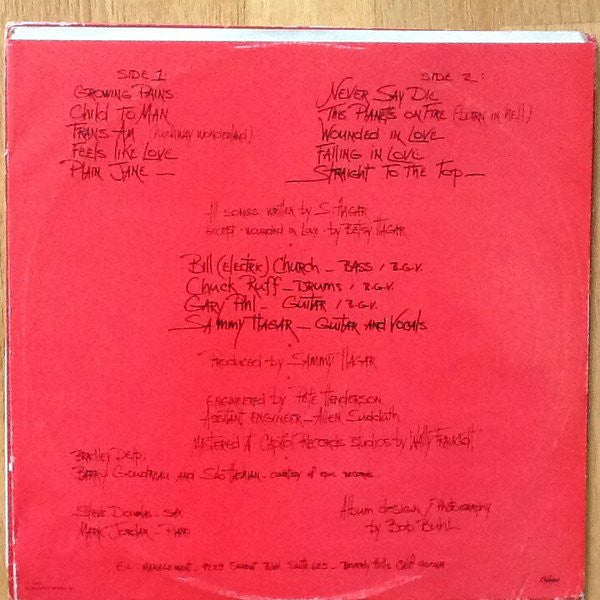 SIDE 1:
GROWING PAINS
CHILD TO MAN
TRANS AM (HIGHWAY WONDERLAND)
FEELS LIKE LOVE
PLAIN JANE —
SIDE 2:
NEVER SAY DIE
THIS PLANETS ON FIRE (BURN IN HELL)
WOUNDED IN LOVE
FALLING IN LOVE
STRAIGHT TO THE TOP —
All SONGS WRITTEN by S. HAGAR
EXCEPT - WOUNDED IN LOVE - by BETSY HAGAR
Bill (ELECTRIC) CHURCH — BASS / B.G.V.
Chuck Ruff — DRUMS / B.G.V.
GARY PIHL — GUITAR / B.G.V.
SAMMY HAGAR — GUITAR AND VOCALS
PRODUCED by SAMMY HAGAR
ENGINEERED by PETE HENDERSON
ASSISTANT ENGINEER — Allen Sudduth
MASTERED AT CAPITOL RECORDS STUDIOS by WAlly
BRADLEY DELP,
BARRY GOUDREAU AND SIB HASHIAN — COURTESY OF EPIC RECORDS
STEVE DOUGLAS — SAX
MARK JORDAN — PIANO
Album DESIGN / PHOTOGRAPHY
by Bob BUHL
MANAGEMENT - 9229 SUNSET Blvd. SUITE 625 - BEVERLY HILLS CALIF 90069
Capitol